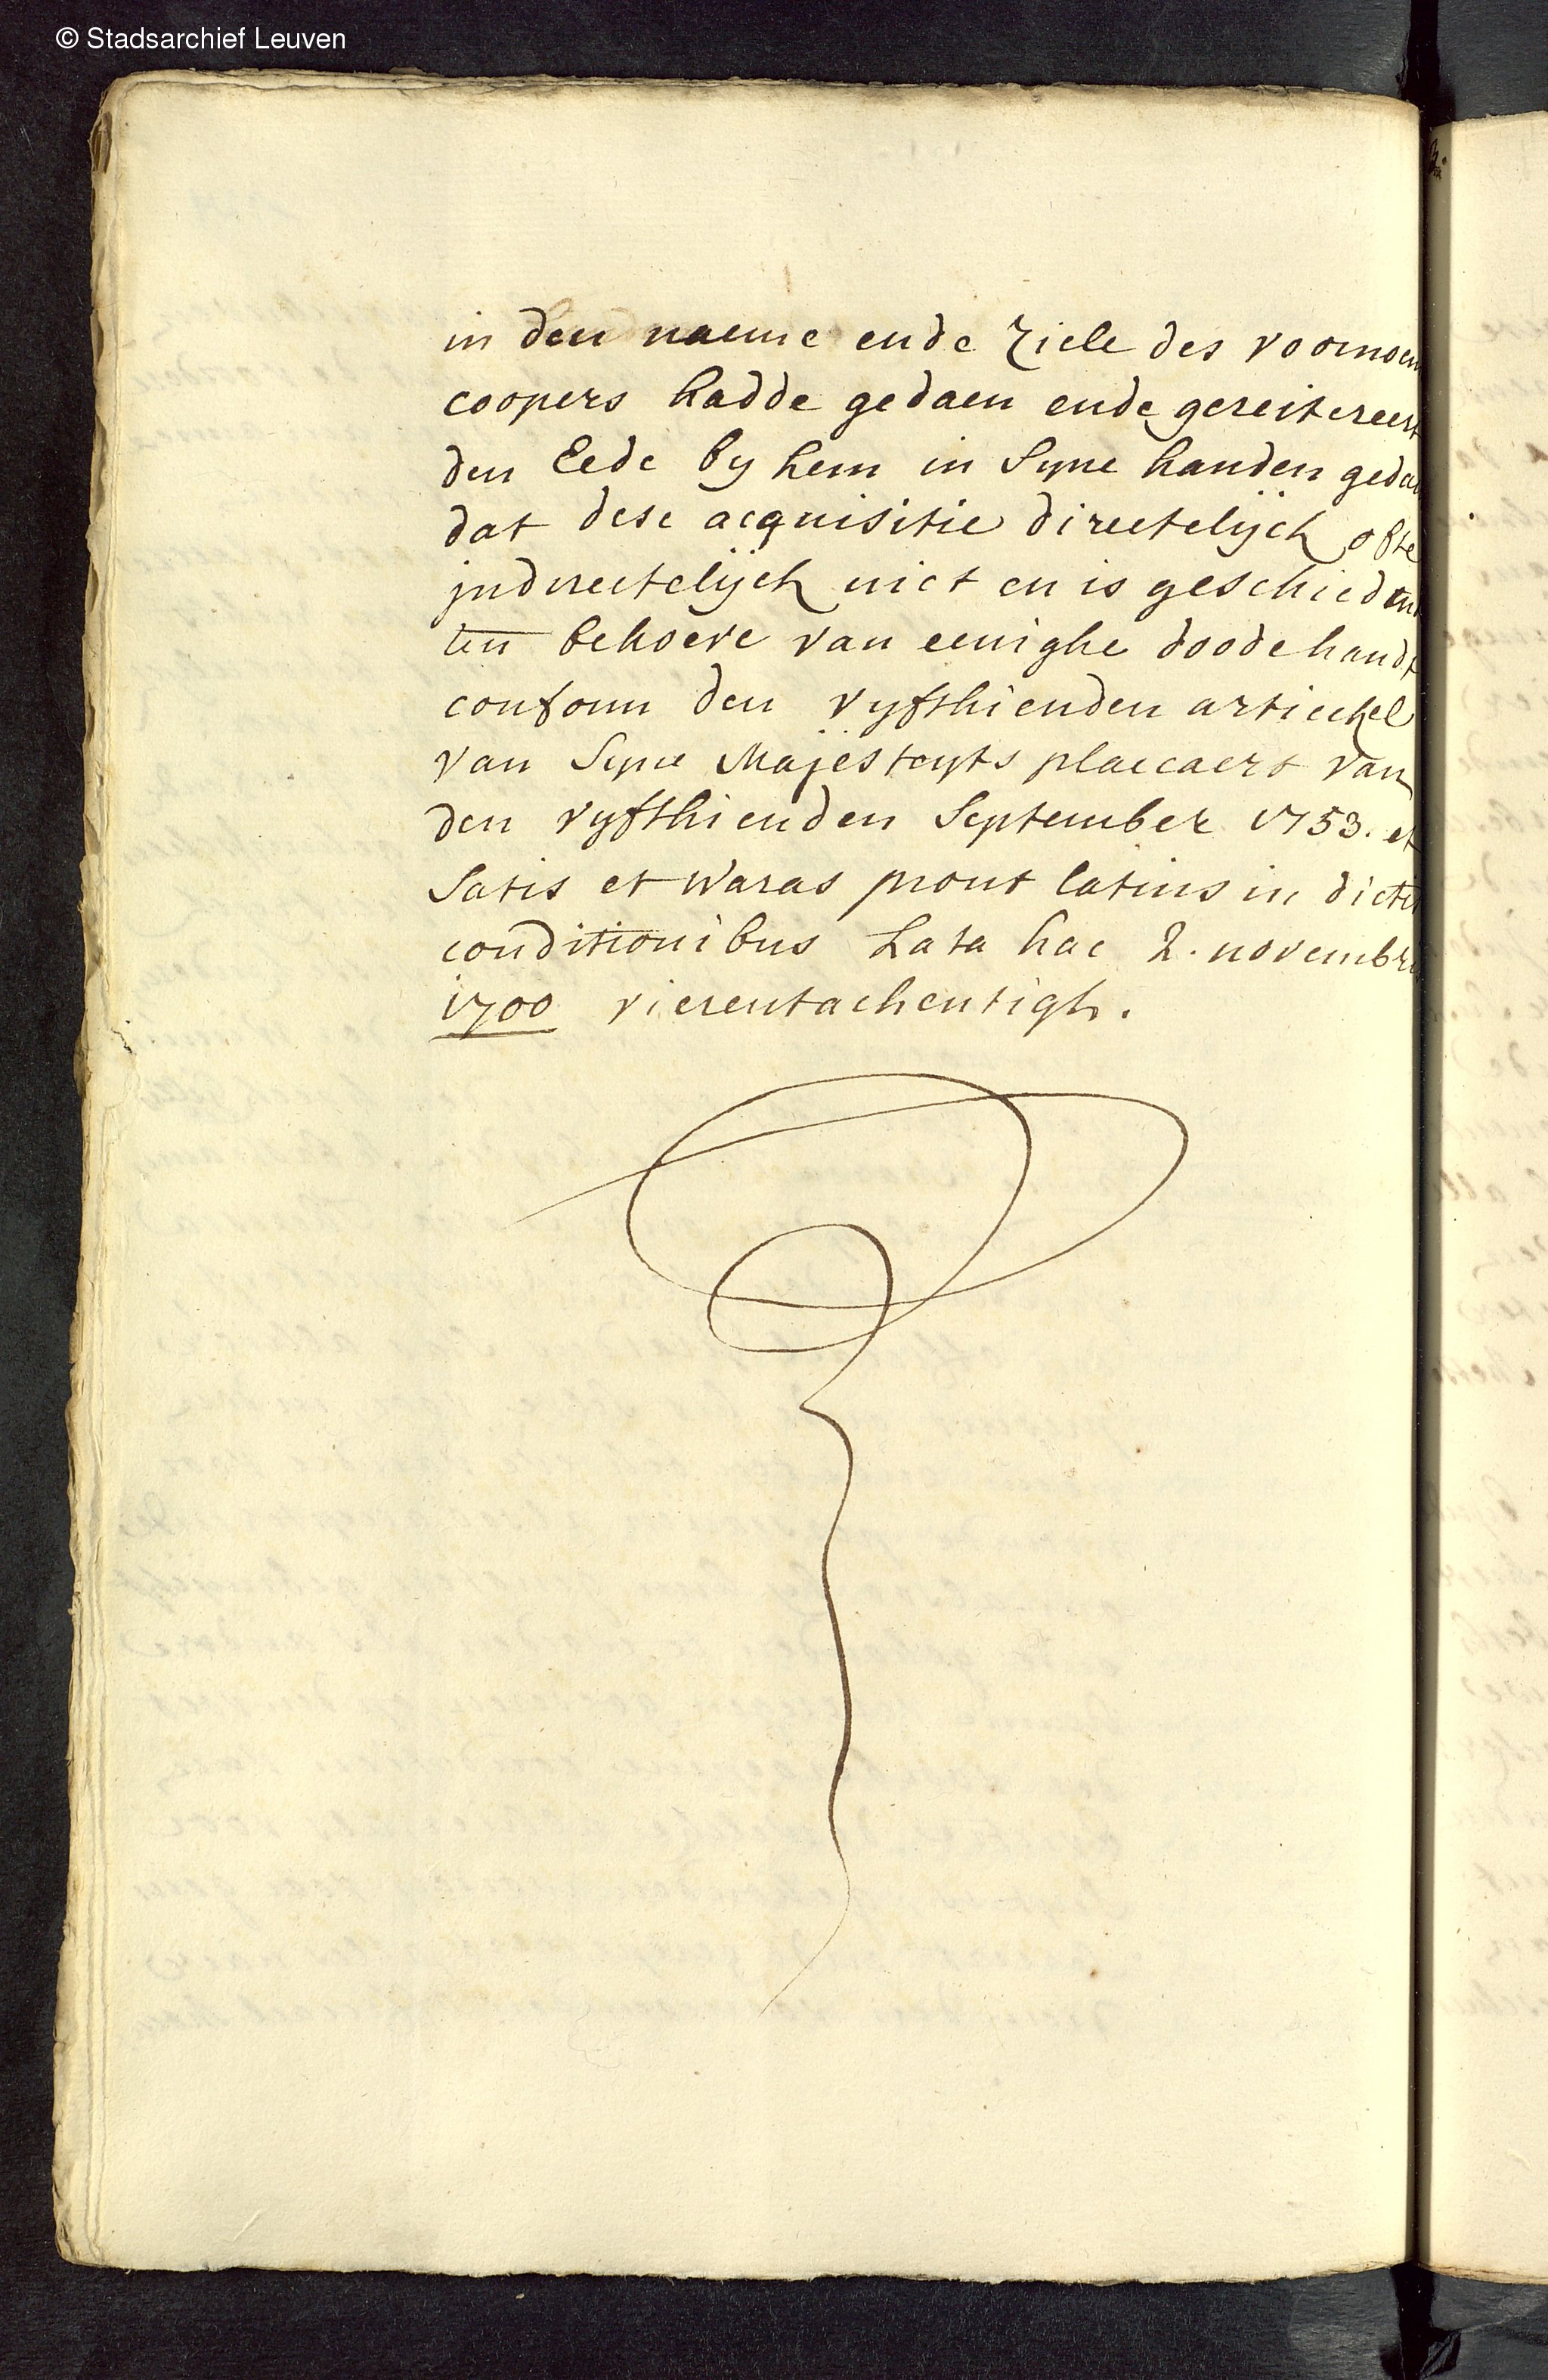 © Stadsarchief Leuven
in den naeme ende ziele des voornoem
coopers hadde gedaen ende gereitereert
den Eede by hem in syne handen geda
dat dese acquisitie directelijck ofte
jndirectelijck niet en is geschied
ten behoeve van eenighe doode handt
conform den vyfthienden artieckel
van syne Majesteyts placcaert van
den vyfthienden September 1753. et
satis et waras prout latius in dictis
conditionibus Lata hac 2. novembris
1700 vierentachentigh.